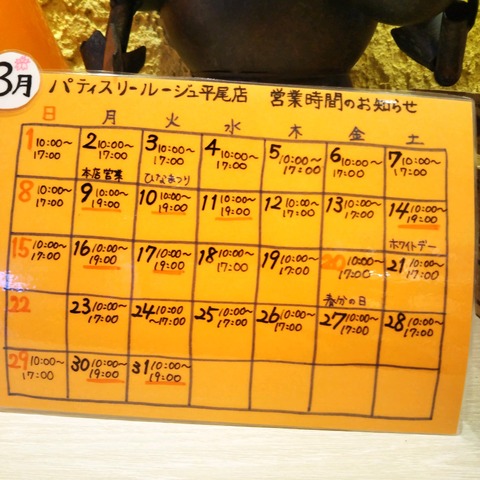 3月 パティスリールージュ平尾店 営業時間のお知らせ
日 月 火 水 木 金 土
1 10:00〜17:00 2 10:00〜17:00 3 10:00〜17:00 4 10:00〜17:00 5 10:00〜17:00 6 10:00〜17:00 7 10:00〜17:00
本店営業 ひなまつり
8 10:00〜17:00 9 10:00〜19:00 10 10:00〜19:00 11 10:00〜19:00 12 10:00〜17:00 13 10:00〜17:00 14 10:00〜19:00
ホワイトデー
15 10:00〜17:00 16 10:00〜19:00 17 10:00〜19:00 18 10:00〜17:00 19 10:00〜17:00 20 10:00〜17:00 21 10:00〜17:00
春分の日
22 23 10:00〜17:00 24 10:00〜17:00 25 10:00〜17:00 26 10:00〜17:00 27 10:00〜17:00 28 10:00〜17:00
29 10:00〜17:00 30 10:00〜19:00 31 10:00〜19:00